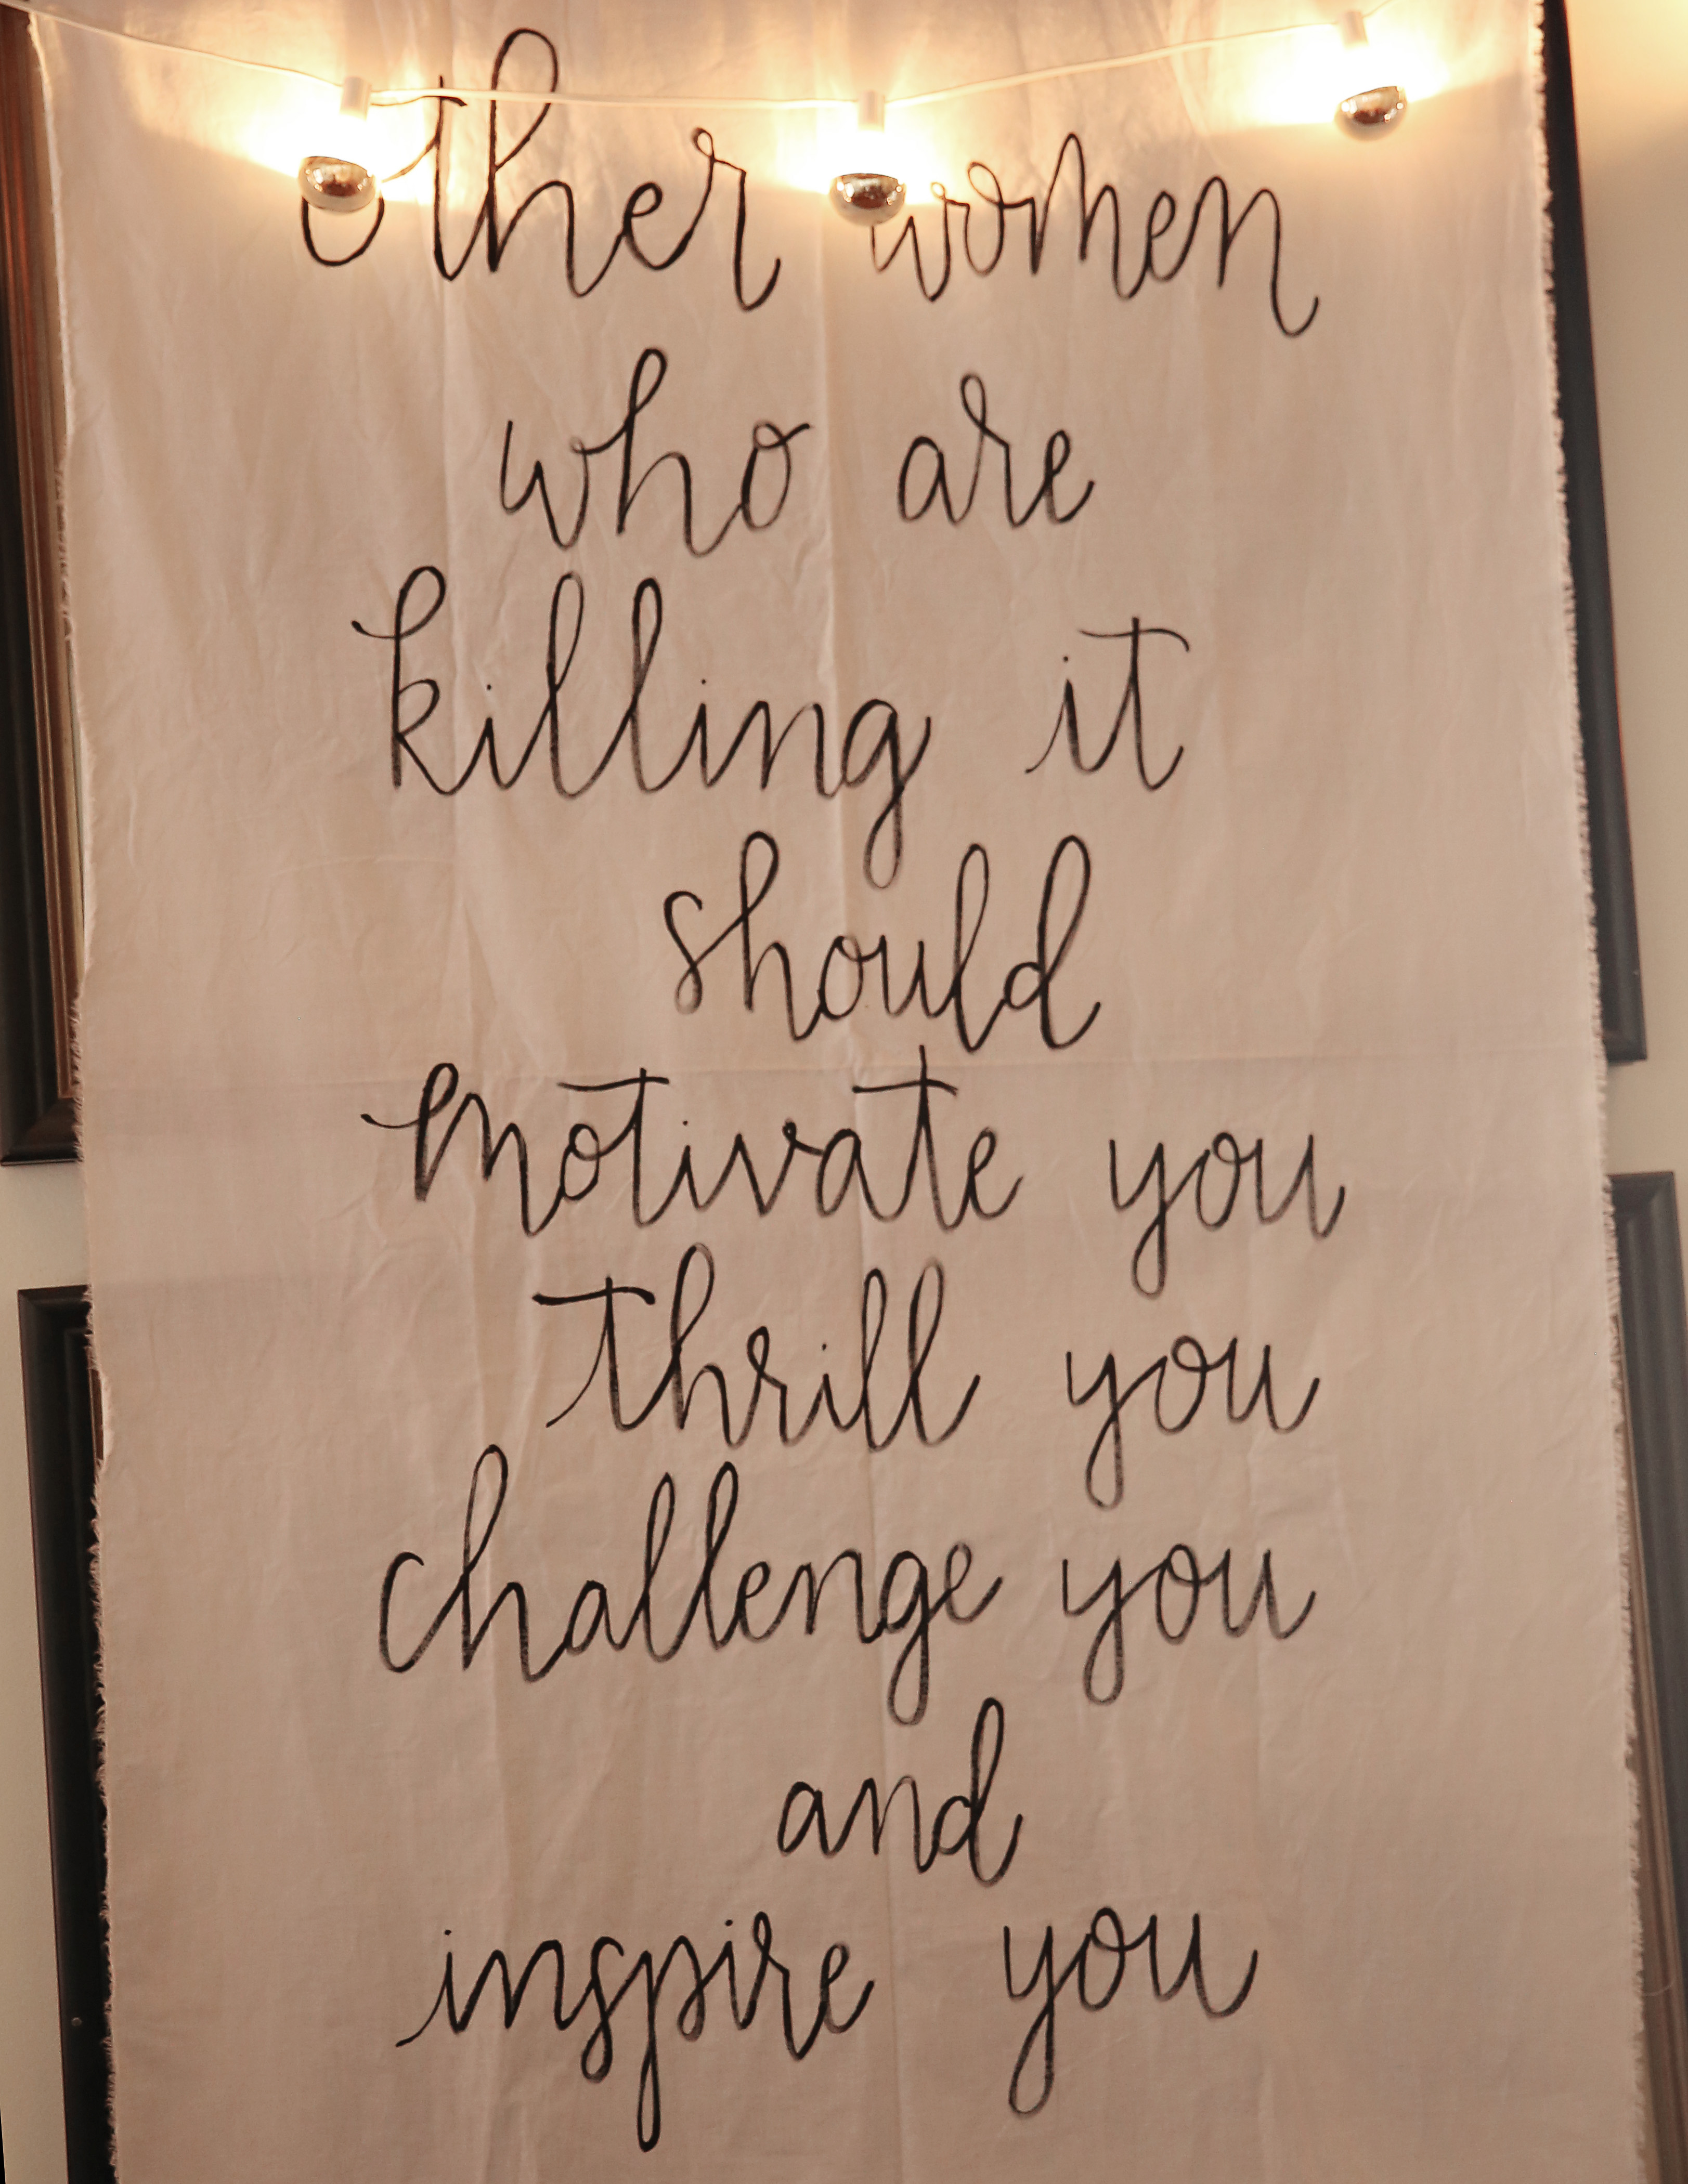 other women
who are
killing it
should
motivate you
thrill you
challenge you
and
inspire you